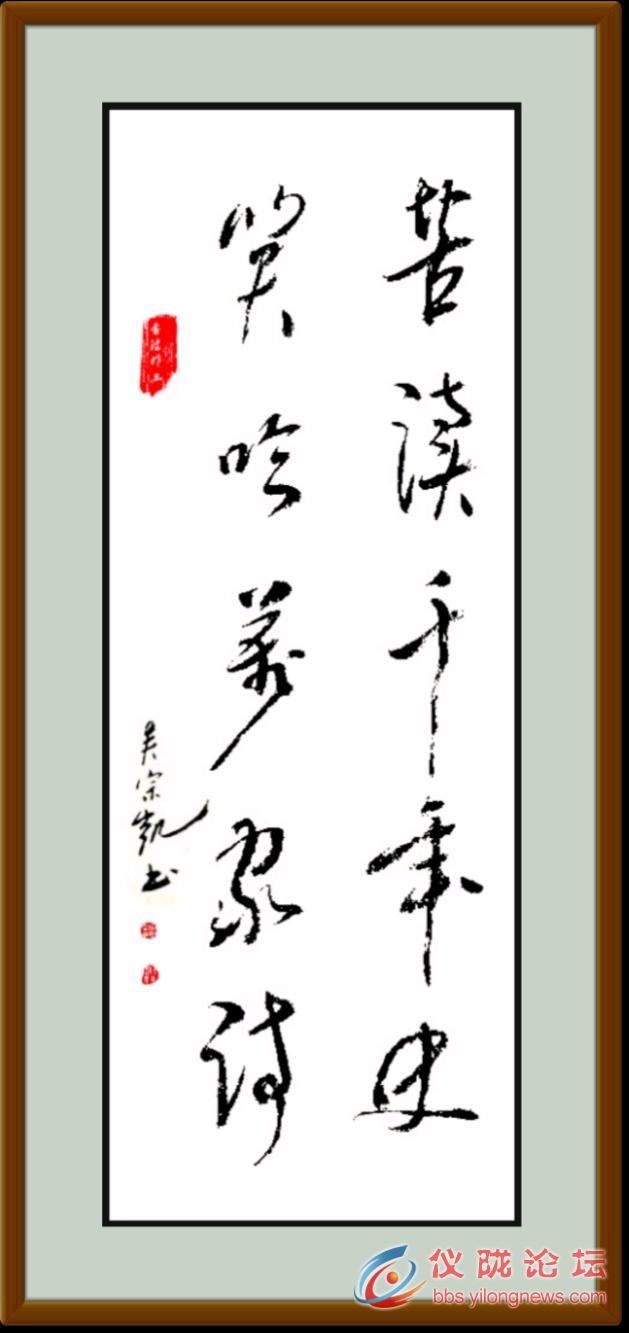 苦读千年史
笑吟万家诗
吴宗凯书
仪陇论坛
bbs.yilongnews.com